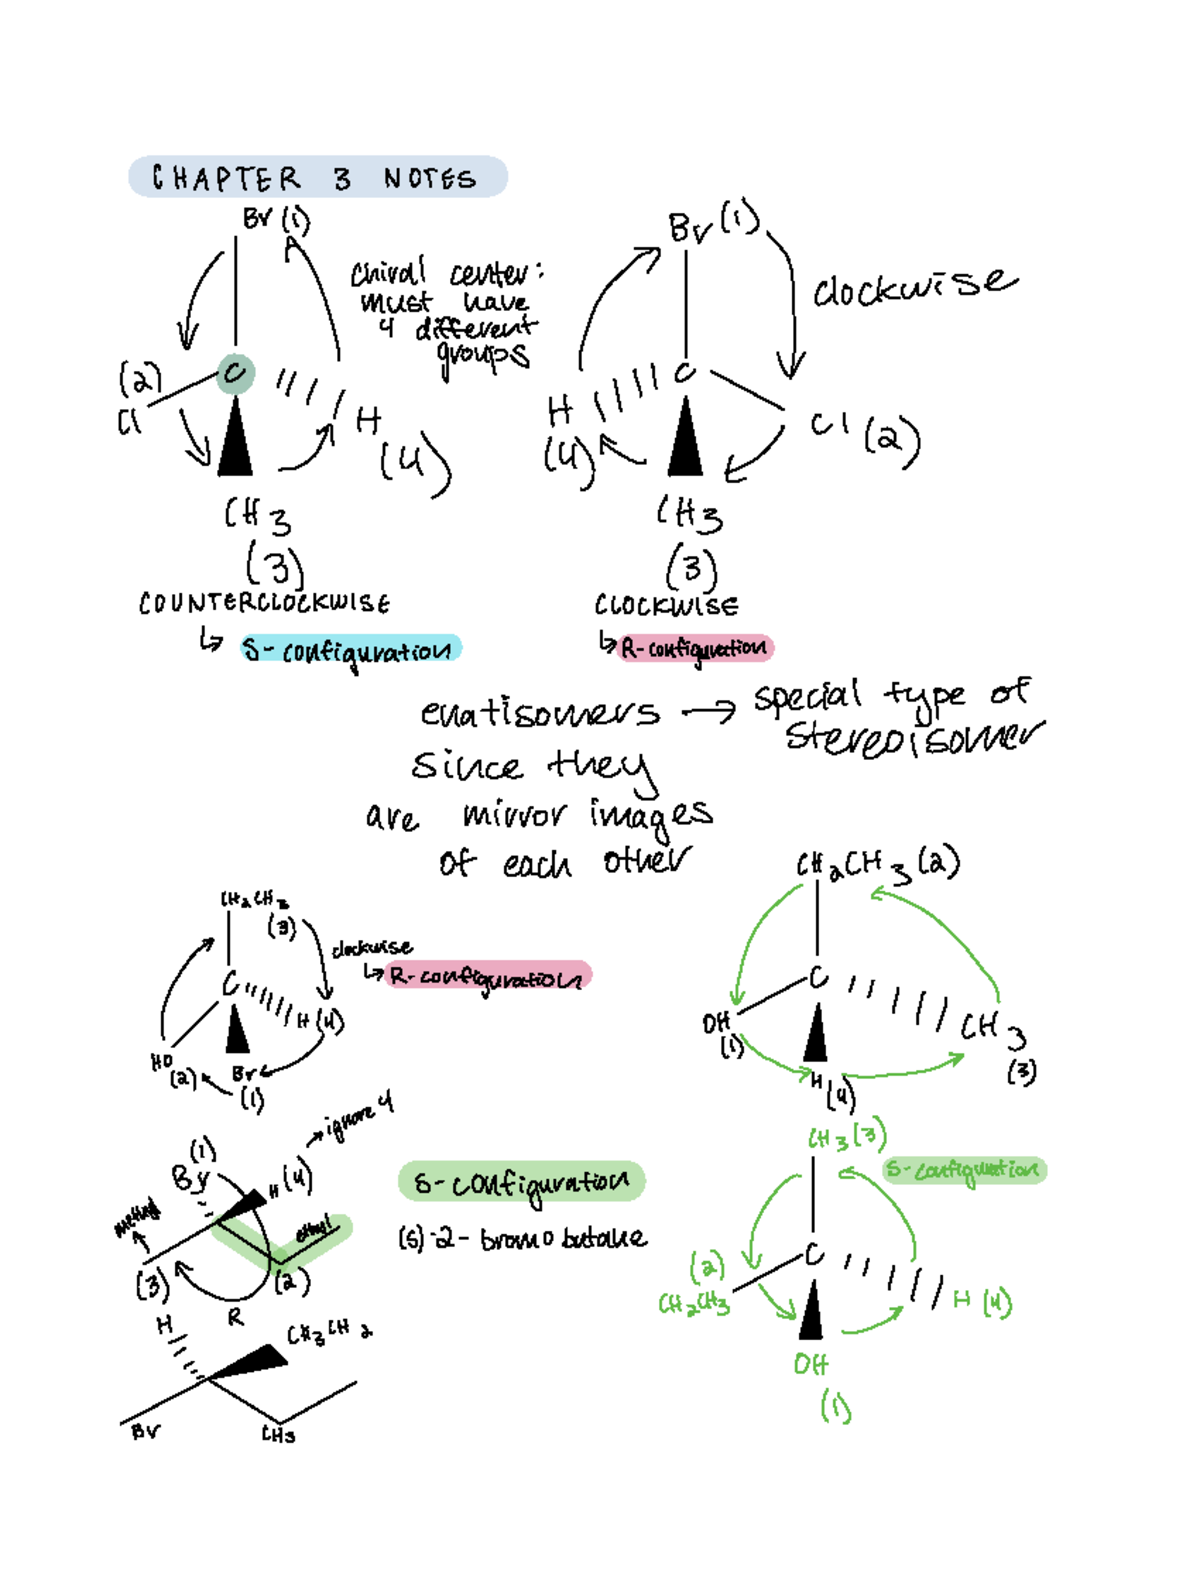 CHAPTER 3 NOTES
Br (1)
chiral center:
must have
4 different
groups
(2)
Cl
C
H
(4)
CH3
(3)
COUNTERCLOCKWISE
↳ S-configuration
Br (1)
clockwise
C
H
(4)
Cl (2)
CH3
(3)
CLOCKWISE
↳ R-configuration
enatisomers → special type of
stereoisomer
since they
are mirror images
of each other
CH2CH3
(3)
clockwise
↳ R-configuration
C
H (4)
HO
(2)
Br
(1)
CH2CH3 (2)
C
OH
(1)
CH3
(3)
H (4)
(1)
Br
H (4)
→ ignore 4
methyl
ethyl
(3)
(2)
R
S-configuration
(S)-2-bromobutane
H
CH3CH2
Br
CH3
CH3 (3)
S-configuration
C
(2)
CH2CH3
H (4)
OH
(1)